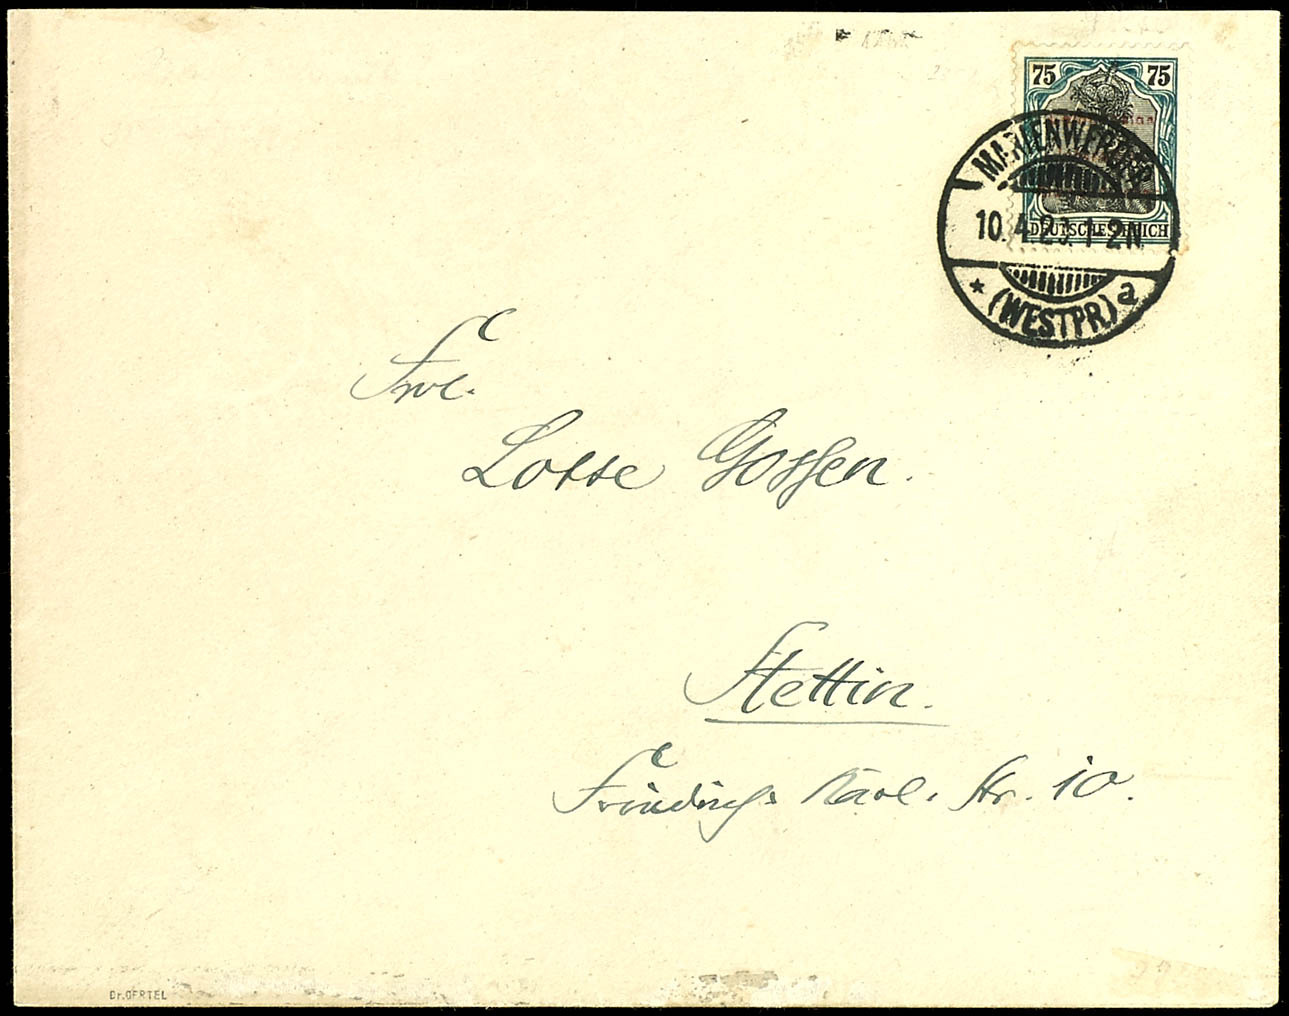 75 75
DEUTSCHES REICH
MARIENWERDER
10.4.20. 1-2N
* (WESTPR) a
Frl.
Lotte Gossen.
Stettin.
Friedrich Karl. Str. 10.
Dr.OERTEL